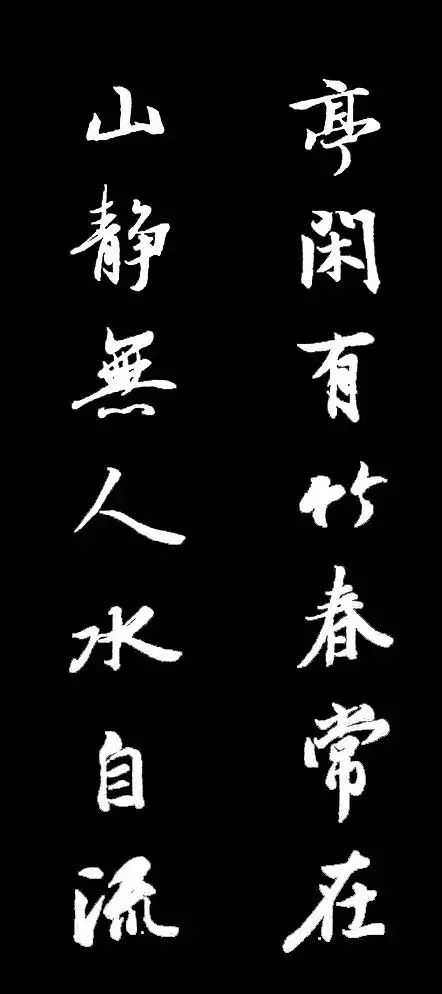 亭閑有竹春常在
山静無人水自流